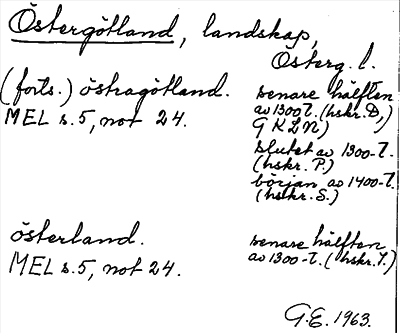 Östergötland, landskap,
Österg. l.
(forts.) östragötland.
MEL s. 5, not 24.
senare hälften
av 1300 t. (hskr. D,
G K L N)
slutet av 1300-t.
(hskr. P.)
början av 1400-t.
(hskr. S.)
österland.
MEL s. 5, not 24.
senare hälften
av 1300-t. (hskr. I.)
G.E. 1963.